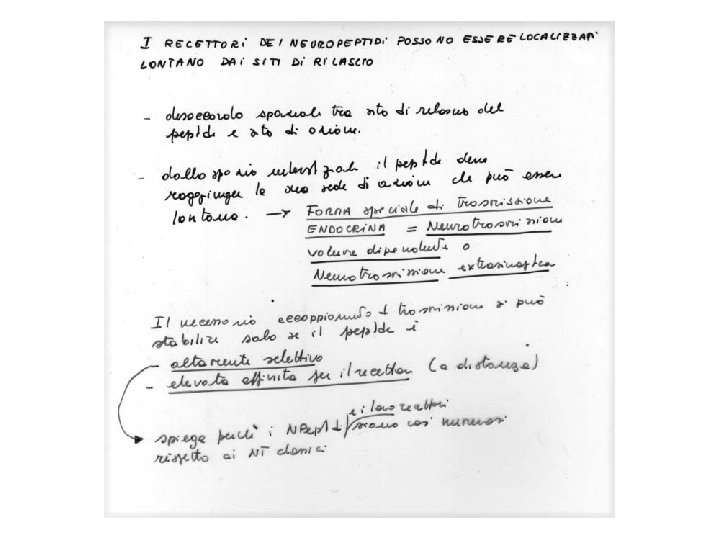 I RECETTORI DEI NEUROPEPTIDI POSSONO ESSERE LOCALIZZATI
LONTANO DAI SITI DI RILASCIO
- disaccordo spaziale tra sito di rilascio del
peptide e sito di azione.
- dallo spazio interstiziale il peptide deve
raggiungere la sua sede di azione che può essere
lontana. → FORMA speciale di trasmissione
ENDOCRINA = Neurotrasmissione
volume dipendente o
Neurotrasmissione extrasinaptica
Il necessario accoppiamento di trasmissione si può
stabilire solo se il peptide è
- altamente selettivo
- elevata affinità per il recettore (a distanza)
e i loro recettori
spiega perché i NPept siano così numerosi
rispetto ai NT classici